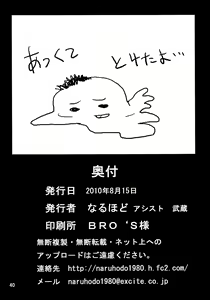 あつくて
とけたよ…
奥付
発行日 2010年8月15日
発行者 なるほど アシスト 武蔵
印刷所 ＢＲＯ'Ｓ様
無断複製・無断転載・ネット上への
アップロードはご遠慮ください。
連絡先 http://naruhodo1980.h.fc2.com/
メール naruhodo1980@excite.co.jp
40